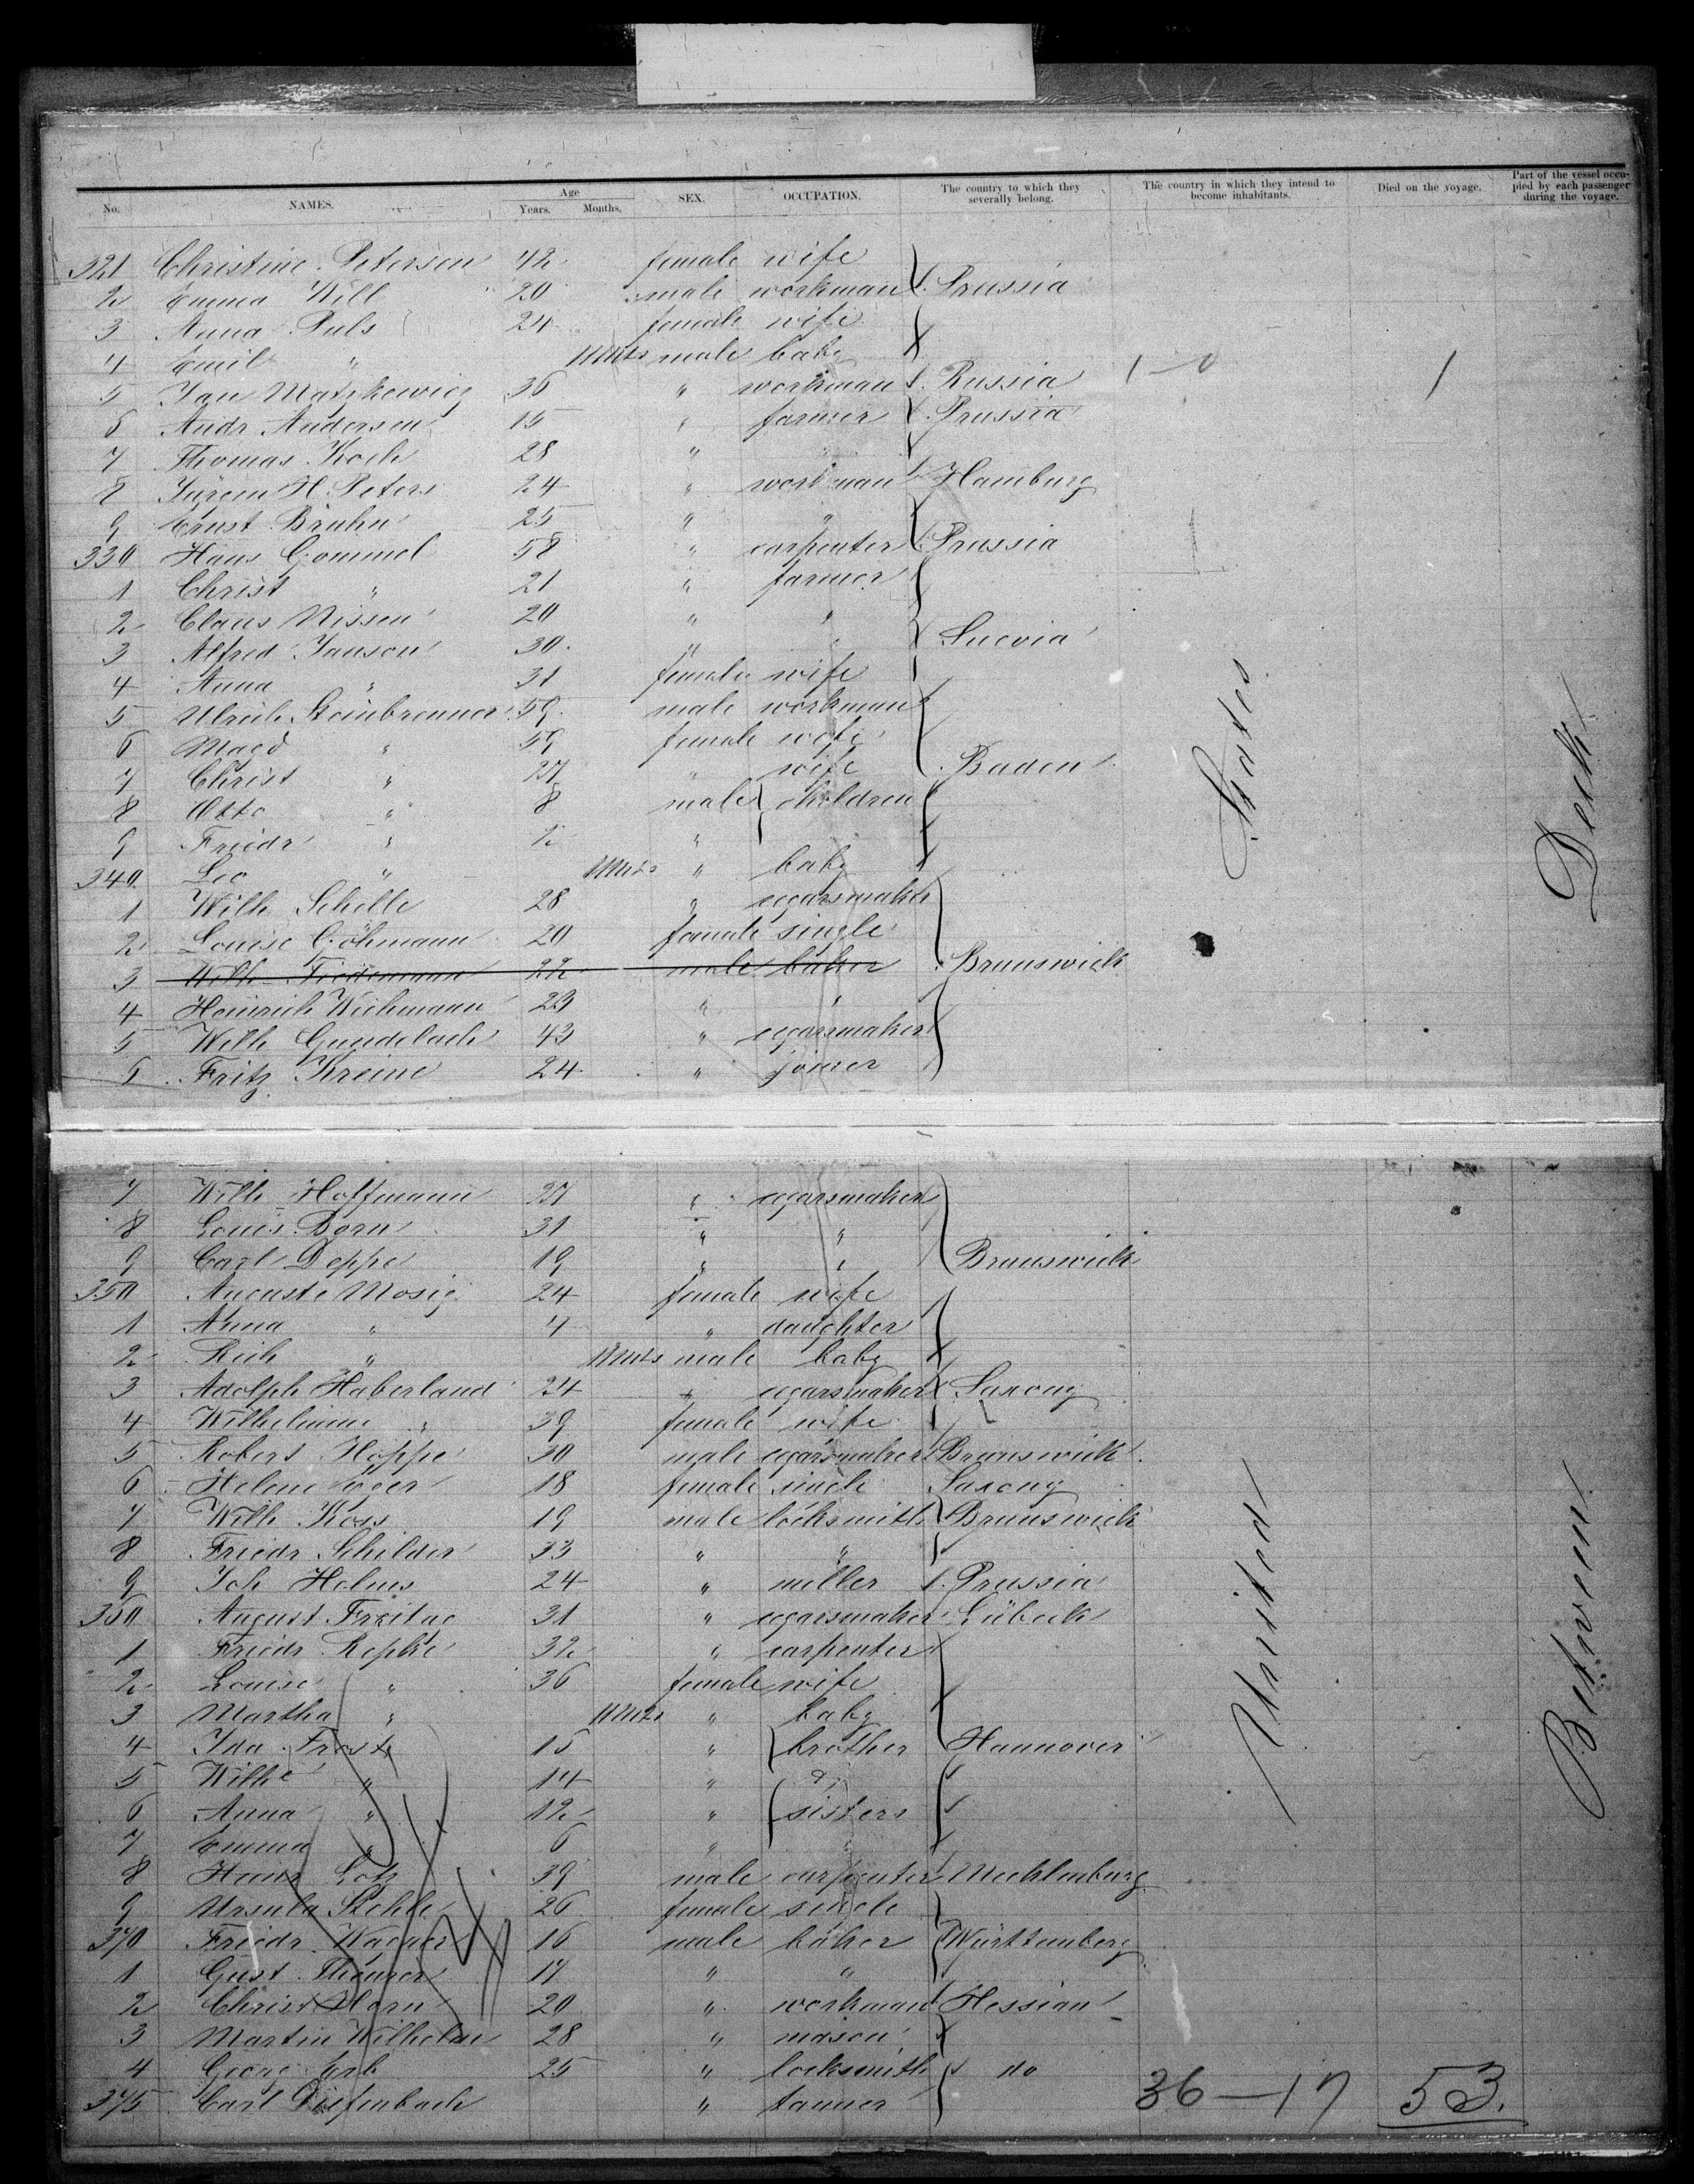 No. NAMES. Age Years. Months. SEX. OCCUPATION. The country to which they severally belong. The country in which they intend to become inhabitants. Died on the voyage. Part of the vessel occupied by each passenger during the voyage.
321 Christine Petersen 42 female wife
2 Emma Will 20 male workman Prussia
3 Anna Puls 24 female wife
4 Emil " male baby
5 Jan Matzkewicz 36 " workman Russia 1
6 Andr Andersen 15 " farmer Prussia
7 Thomas Koch 28 " "
8 Jurgen H. Peters 24 " workman Hamburg
9 Ernst Bruhn 25 " "
330 Hans Gommel 58 " carpenter Prussia
1 Christ " 21 " farmer
2 Claus Nissen 20 " "
3 Alfred Janson 30 " " Suevia
4 Anna " 31 female wife
5 Ulrich Steinbrenner 59 male workman
6 Magd " 59 female wife
7 Christ " 27 " wife Baden
8 Otto " 8 male children
9 Friedr " 2 "
340 Leo " " baby
1 Wilh Schelle 28 " cigarsmaker
2 Louise Göhmann 20 female single
3 Wilh Tiedemann 22 male baker Brunswick
4 Heinrich Wichmann 23 " "
5 Wilh Gundelach 43 " cigarsmaker
6 Fritz Kreine 24 " joiner
7 Wilh Hoffmann 27 " cigarsmaker
8 Louis Born 31 " "
9 Carl Deppe 19 " " Brunswick
350 Auguste Mosig 24 female wife
1 Anna " 4 " daughter
2 Rich " male baby
3 Adolph Haberland 24 " cigarsmaker Saxony
4 Wilhelmine " 39 female wife
5 Robert Hoppe 30 male cigarsmaker Brunswick
6 Helene 18 female single Saxony
7 Wilh Koss 19 male locksmith Brunswick
8 Friedr Schilder 33 " "
9 Joh Holms 24 " miller Prussia
360 August Freitag 31 " cigarsmaker Lübeck
1 Friedr Repke 32 " carpenter
2 Louise " 36 female wife
3 Martha " " baby
4 Ida Frost 15 " brother Hannover
5 Wilhe " 14 "
6 Anna " 12 " sisters
7 Emma " 6 " "
8 Hans Lotz 39 male carpenter Mecklenburg
9 Ursula Stehle 26 female single
370 Friedr Wagner 16 male baker Württemberg
1 Gust. Theurer 17 " "
2 Christ Horn 20 " workman Hessian
3 Martin Wilhelm 28 " mason
4 Georg Erb 25 " locksmith do
375 Carl Diefenbach " tanner
36—17 53.
United States
Between Deck